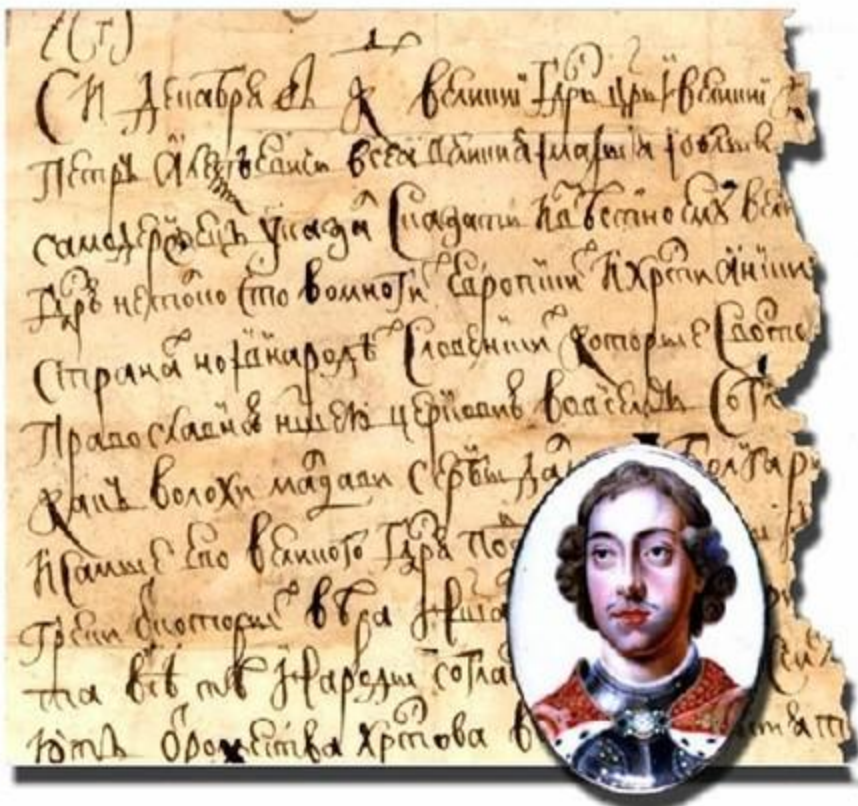 СИ декабря въ К великиі Гдрь црь і великиі
Петръ Алеѯѣевичь всеа великиа і малыа і бѣлыа
самодержецъ указа сказати извѣстно ему вели
Гдрю нетоко что вомноги европски и христиански
страна но і внарода словенски которые свосто
православною нашею церковию вовсемъ согла
какъ волохи мадави сербы да болгары
исамые его великого Гдря по
греки от которы вѣра наша
та всѣ тѣ народы согла
ютъ от рожества христова в